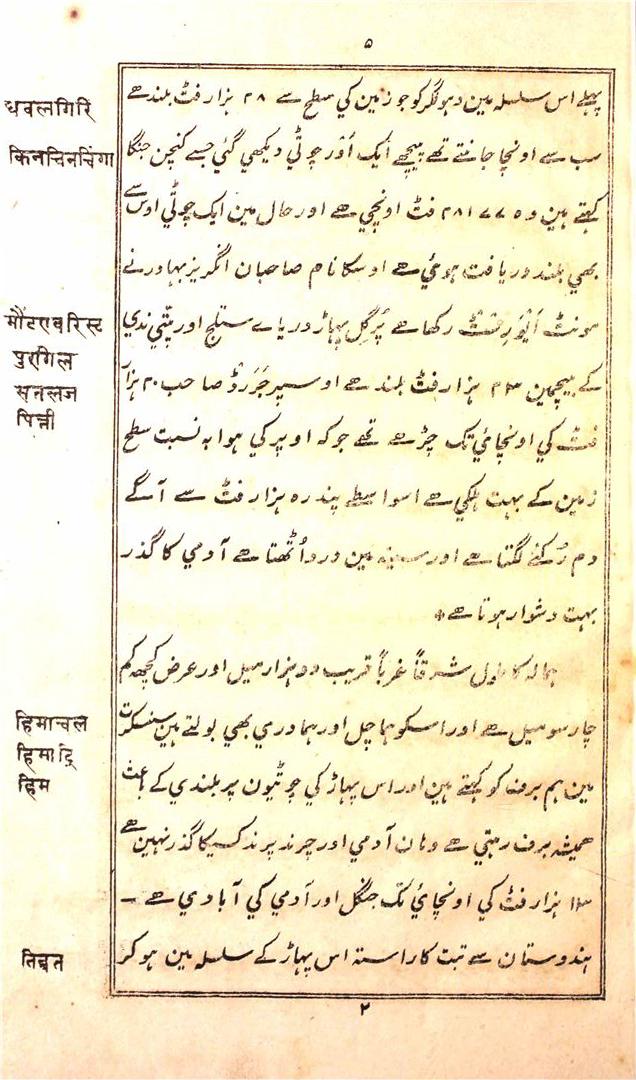 ۵
پہلے اس سلسلہ مین دہولگر کو جو زمین کي سطح سے ۲۸ ہزار فٹ بلند ھے
धवलगिरि
سب سے اونچا جانتے تھے پیچھے ایک اَوْر چوٹي دیکھي گئي جسے کنچن جنگا
किनचिनचिंगा
کہتے ہین وہ ۲۸۱۷۷ فٹ اونچي ھے اور حال مین ایک چوٹي اوس سے
بھي بلند دریافت ہوئي ھے اوسکا نام صاحبان انگریز بہادر نے
مونٹ اَیْوَرِسْٹ رکھا ھے پُرگِل پہاڑ دریاے ستلج اور پِتّي ندي
मौंटएवरिस्ट
पुरगिल
کے بیچمین ۲۳ ہزار فٹ بلند ھے اوسپر جَرَرڈ صاحب ۲۰ ہزار
सतलज
فٹ کي اونچائي تک چڑھے تھے جو کہ اوپر کي ہوا بہ نسبت سطح
पित्ती
زمین کے بہت ہلکي ھے اسواسطے پندرہ ہزار فٹ سے آگے
دم رُکنے لگتا ھے اور سینہ مین درد اُٹھتا ھے آدمي کا گذر
بہت دشوار ہوتا ھے *
ہمالہ کا طول شرقاً غرباً قریب دو ہزار میل اور عرض کچھہ کم
چار سو میل ھے اور اسکو ہماچل اور ہمادري بھي بولتے ہین سنسکرت
हिमाचल
हिमाद्रि
مین ہم برف کو کہتے ہین اور اس پہاڑ کي چوٹیون پر بلندي کے باعث
हिम
ھمیشہ برف رہتي ھے وہان آدمي اور چرند پرند کسیکا گذر نہین ھے
۱۳ ہزار فٹ کي اونچائي تک جنگل اور آدمي کي آبادي ھے ـ
ہندوستان سے تبت کا راستہ اس پہاڑ کے سلسلہ مین ہو کر
तिब्बत
۲